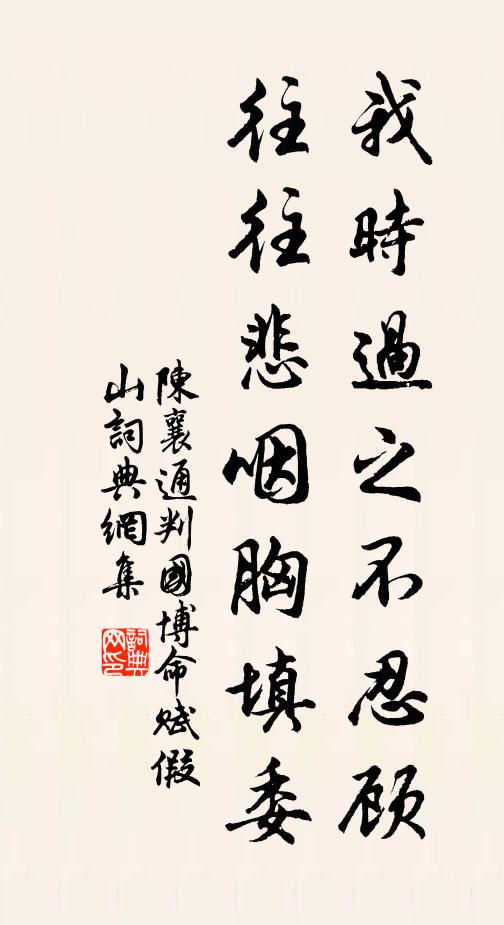 我時過之不忍顾
往往悲咽胸填委
陳襄通判國博命赋假
山詞典網集
詞典
网印